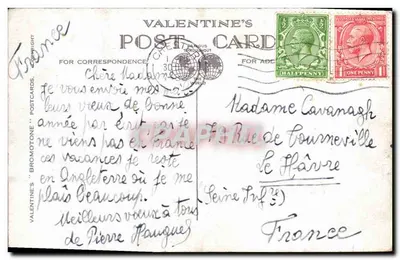 VALENTINE'S
POST CARD
FOR CORRESPONDENCE
HALFPENNY
ONE PENNY
France
VALENTINE'S "BROMOTONE" POSTCARDS.
Chère Madame
je vous envoie mes
meilleurs vœux de bonne
année par écrit
je ne
viens pas en France
ces vacances je reste
en Angleterre où je me
plais beaucoup.
Meilleurs vœux à tous
de Pierre
Madame Cavanagh
Rue de Tourneville
Le Hâvre
(Seine Infre)
France